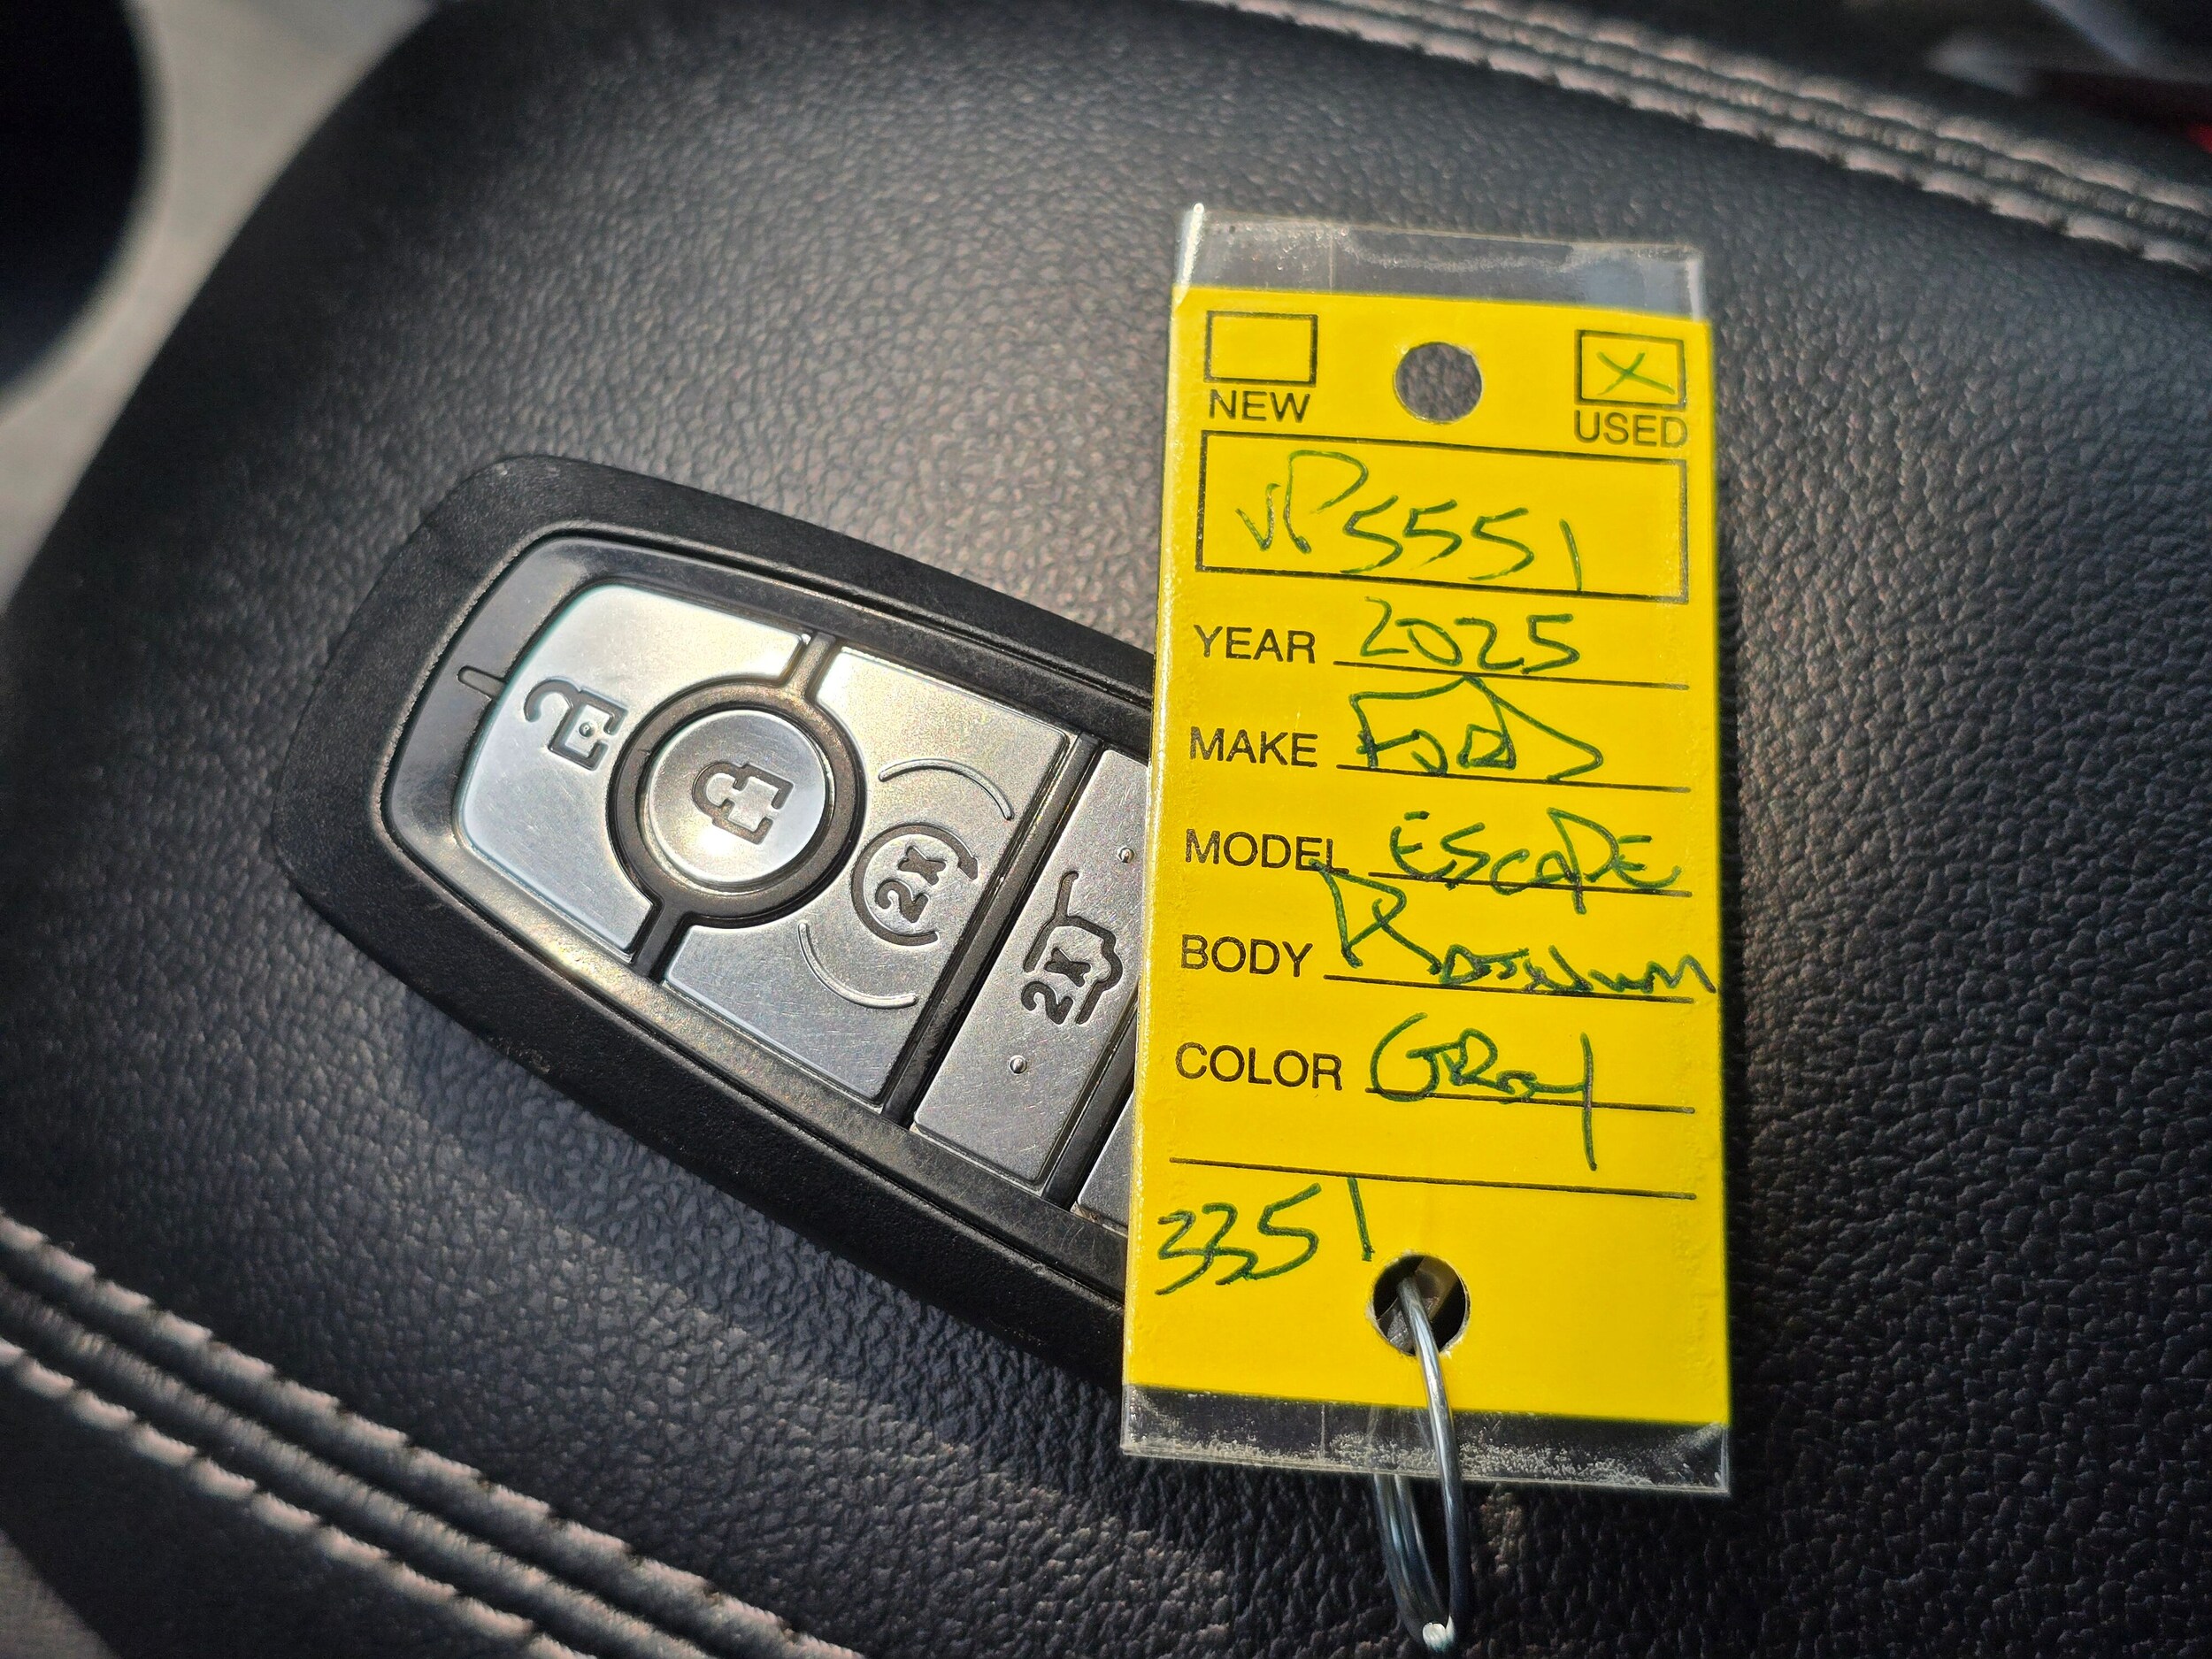 NEW USED
VP5551
YEAR 2025
MAKE FORD
MODEL ESCAPE
BODY
COLOR GRAY
3351
2x
2x